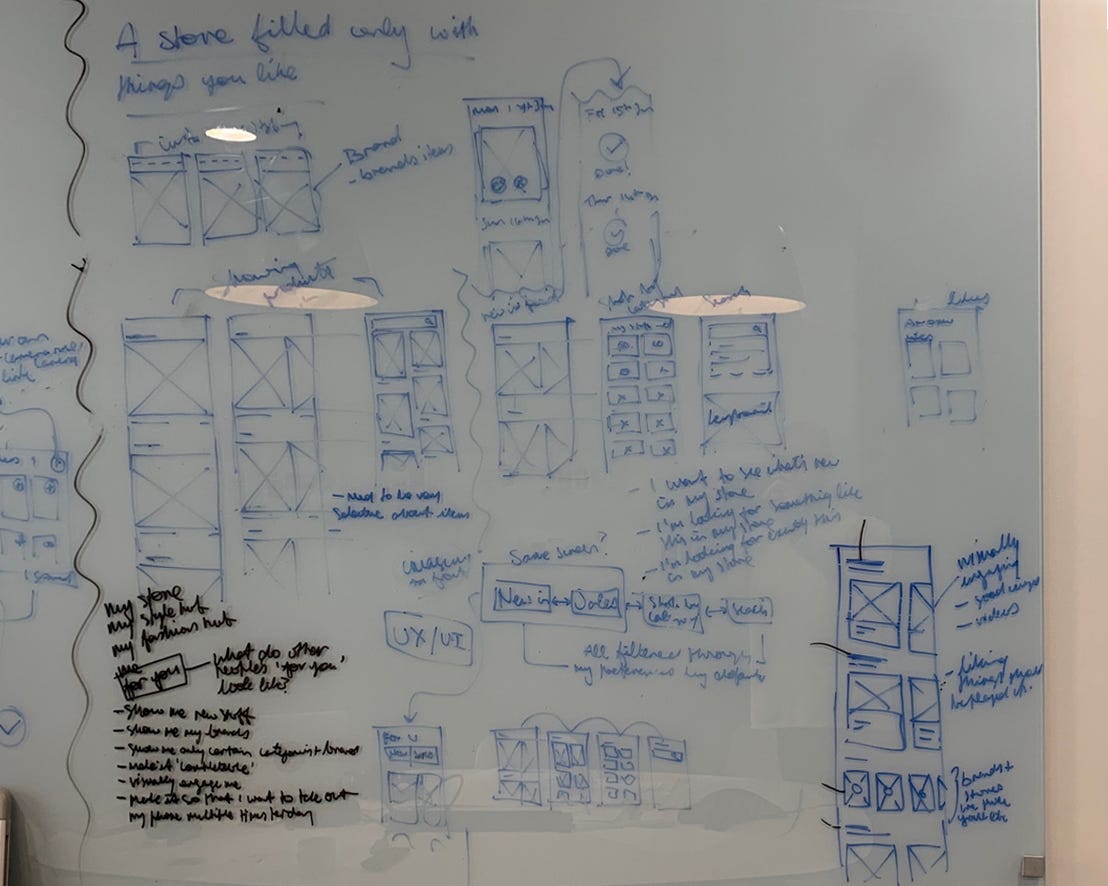 A store filled only with
things you like
Brand
- brands items
Mon 17th Jan
Sun 16th Jan
For 15th Jan
Done!
Done
showing
products
new in
Shop by
category
Search
likes
my store
- need to be very
selective about items
- I want to see what's new
in my store
- I'm looking for something like
this in my store
- I'm looking for exactly this
in my store
Same screen?
New in
Sales
Shop by
category
Search
All filtered through
my preferences by default
UX/UI
my store
my style hub
my fashion hub
me
for you
what do other
peoples 'for you'
look like?
- Show me new stuff
- Show me my brands
- Show me only certain categories + brands
- make it 'completable'
- visually engage me
- make it so that I want to take out
my phone multiple times/day
For U
New
Sale
visually
engaging
- good images
- videos
- liking
things
brands +
stores
we think
you'll like